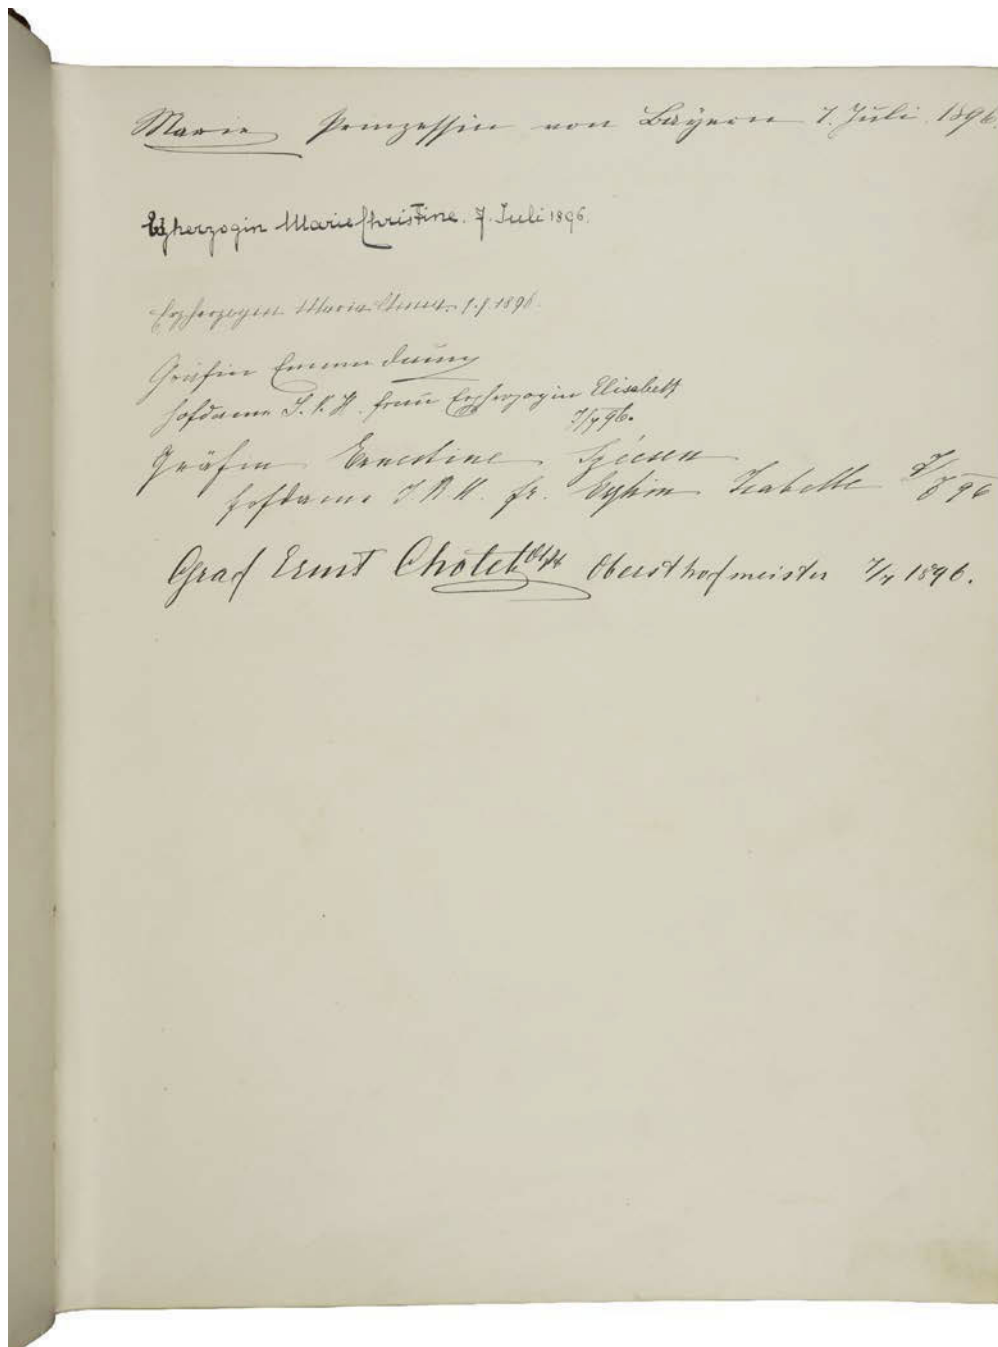 Marie Prinzessin von Bayern 7. Juli 1896
Erzherzogin Marie Christine. 7. Juli 1896.
Erzherzogin Maria Anna. 7.7.1896.
Gräfin Emma
Hofdame I. K. H. Frau Erzherzogin Elisabeth
7/7 96.
Gräfin Ernestine
Hofdame I. K. H. Fr. Isabelle 96
Graf Ernst Chotek Obersthofmeister 7/7 1896.